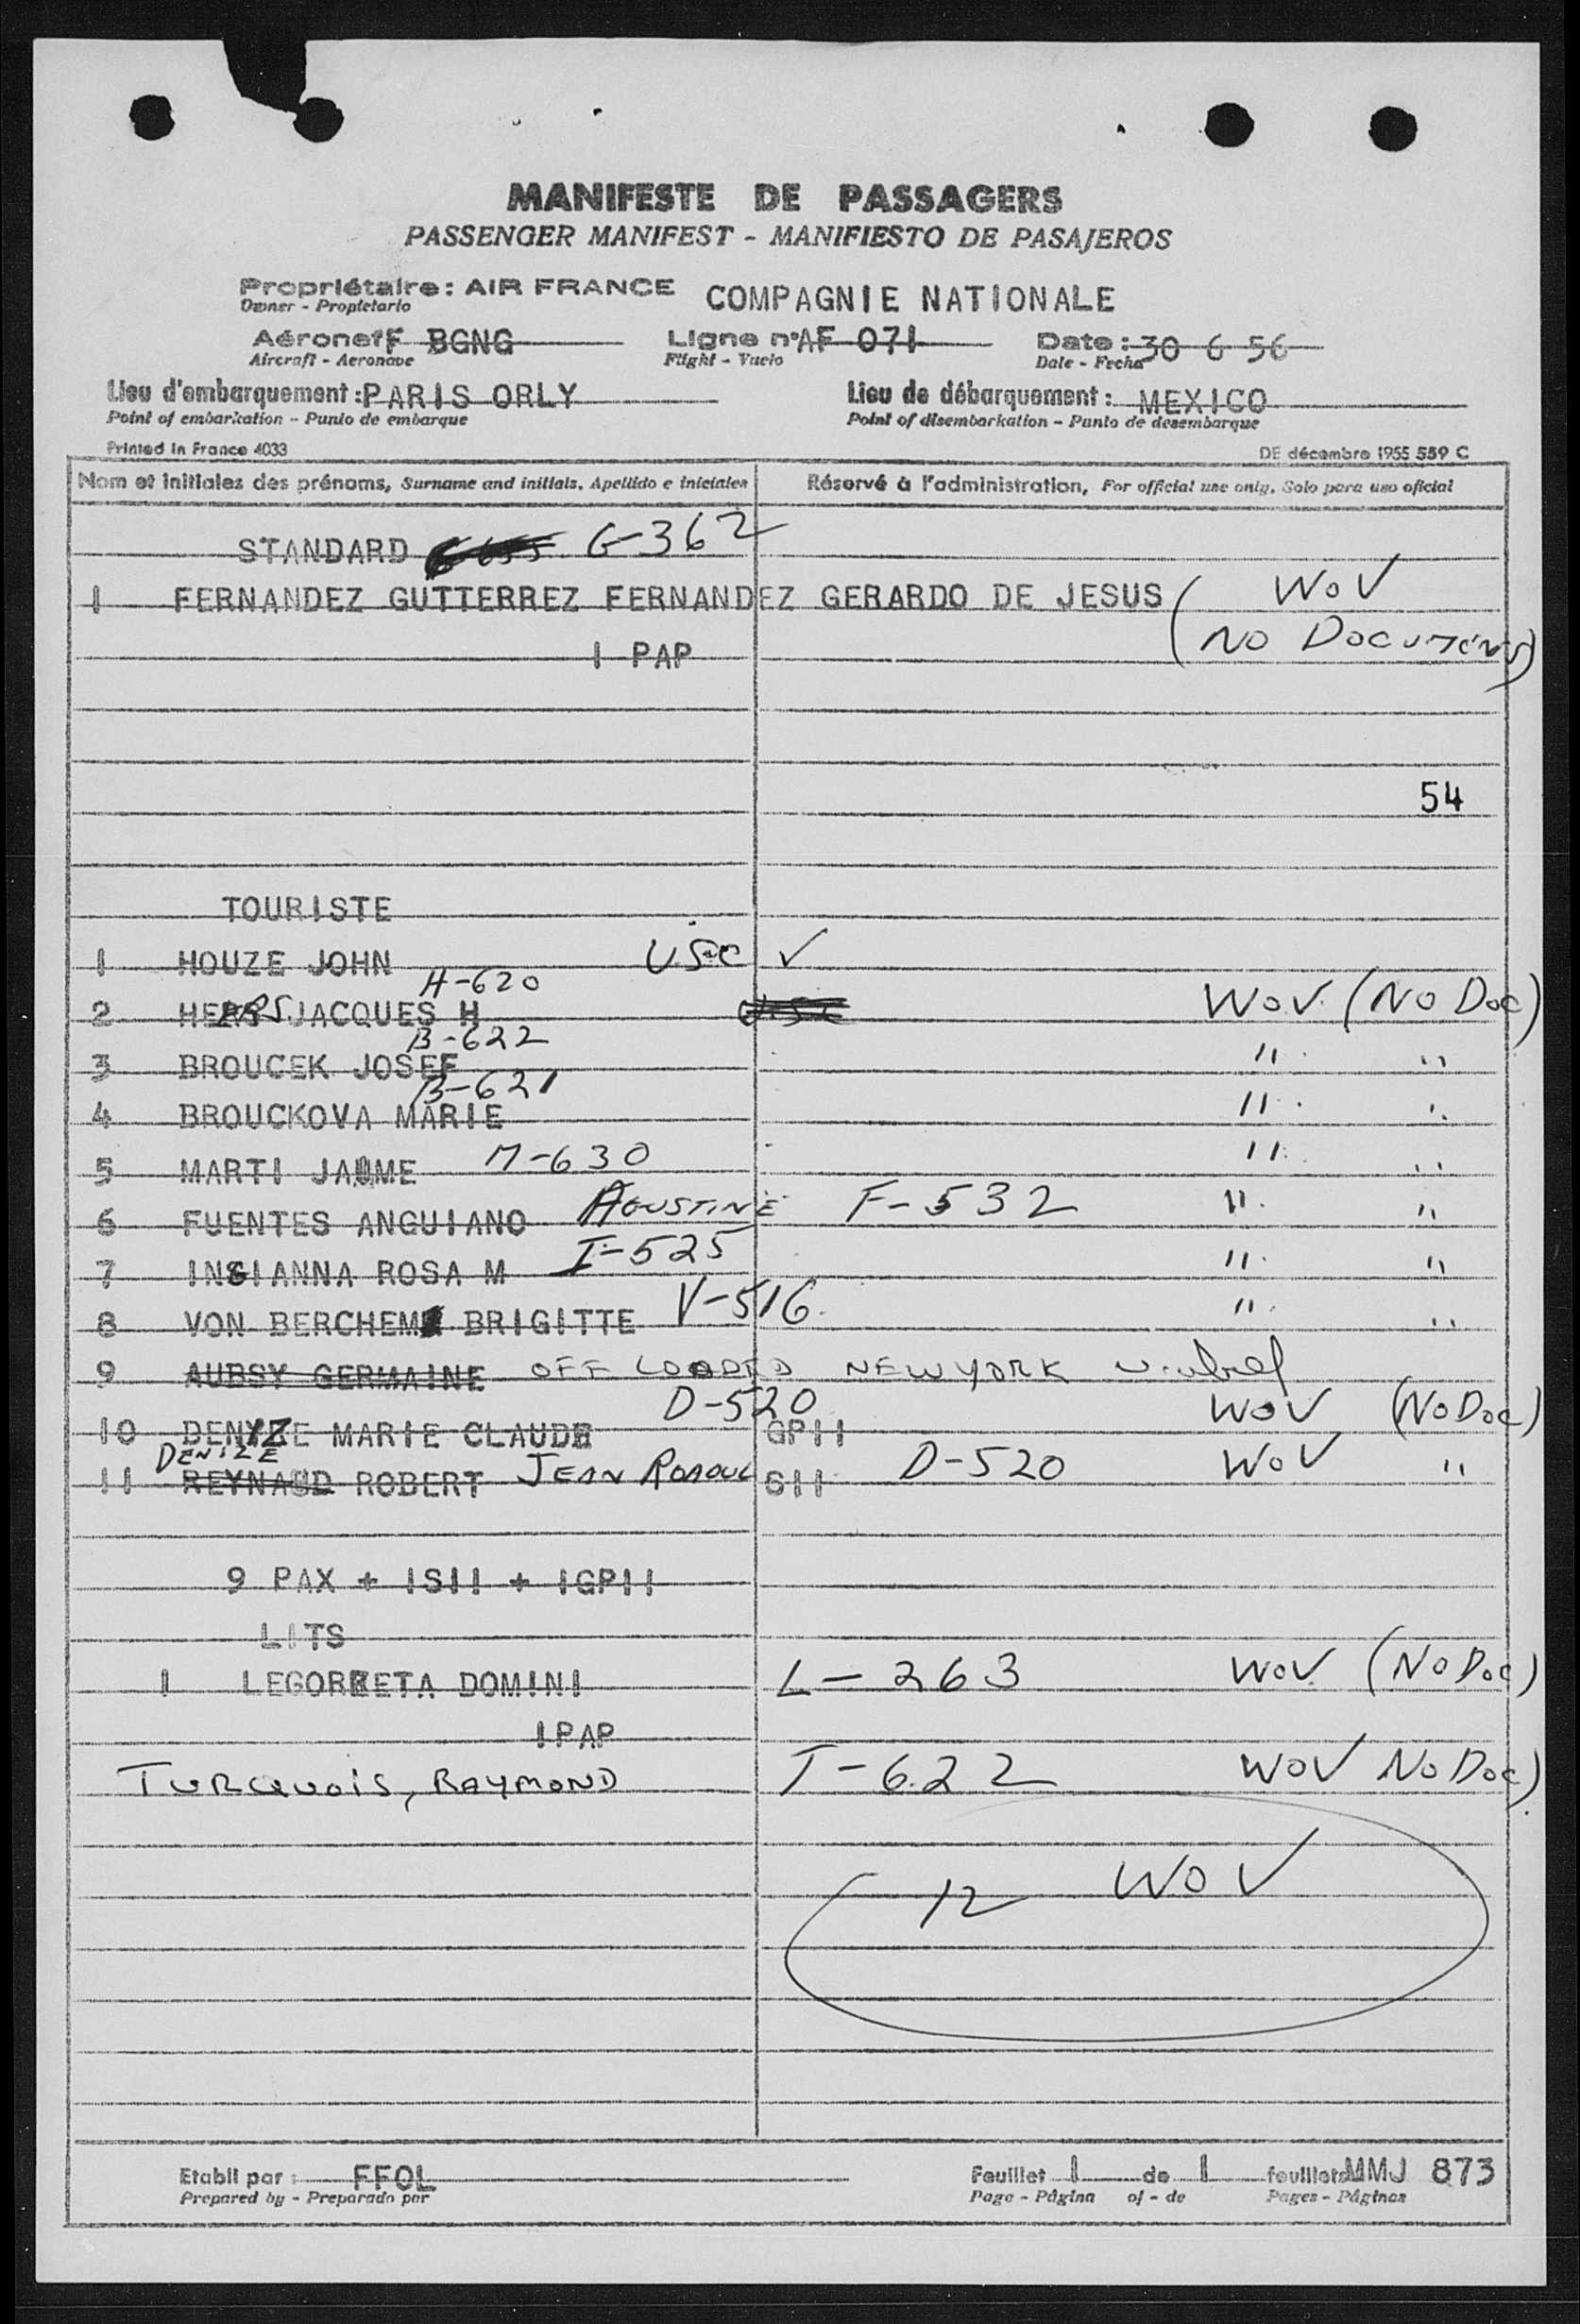 MANIFESTE DE PASSAGERS
PASSENGER MANIFEST - MANIFIESTO DE PASAJEROS
Propriétaire: AIR FRANCE COMPAGNIE NATIONALE
Owner - Propietario
Aéronef F BGNG Ligne n° AF 071 Date: 30 6 56
Aircraft - Aeronave Flight - Vuelo Date - Fecha
Lieu d'embarquement: PARIS ORLY Lieu de débarquement: MEXICO
Point of embarkation - Punto de embarque Point of disembarkation - Punto de desembarque
Printed in France 4033 DE décembre 1955 559 C
Nom et initiales des prénoms, Surname and initials, Apellido e iniciales Réservé à l'administration, For official use only, Solo para uso oficial
STANDARD G-362
1 FERNANDEZ GUTTERREZ FERNANDEZ GERARDO DE JESUS ( WOV
1 PAP NO DOCUMENTS)
54
TOURISTE
1 HOUZE JOHN USC ✓
2 JACQUES H H-620 WOV. (NO DOC)
3 BROUCEK JOSEF B-622 " "
4 BROUCKOVA MARIE B-621 " "
5 MARTI JAUME M-630 " "
6 FUENTES ANGUIANO AGUSTINE F-532 " "
7 INGIANNA ROSA M I-525 " "
8 VON BERCHEM BRIGITTE V-516 " "
9 AUBSY GERMAINE OFF LOADED NEW YORK
10 DENIZE MARIE CLAUDE D-520 GP11 WOV (NO DOC)
DENIZE
11 REYNAUD ROBERT JEAN S11 D-520 WOV "
9 PAX + 1S11 + 1GP11
LITS
1 LEGORRETA DOMINI L-263 WOV (NO DOC)
1PAP
TURQUOIS, RAYMOND T-622 WOV NO DOC)
12 WOV
Etabli par: FFOL Feuillet 1 de 1 feuillets MMJ 873
Prepared by - Preparado por Page - Página of - de Pages - Páginas